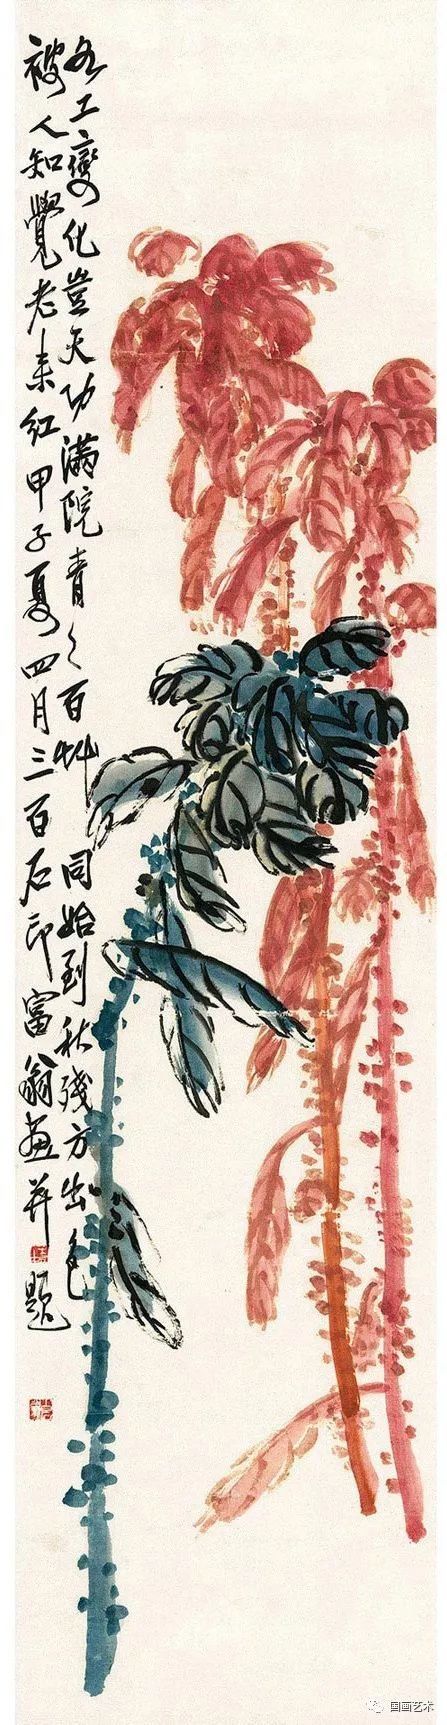 各工變化豈天功滿院青〻百艸同始到秋殘方出色
被人知覺老来紅甲子夏四月三百石印富翁畫并題
国画艺术